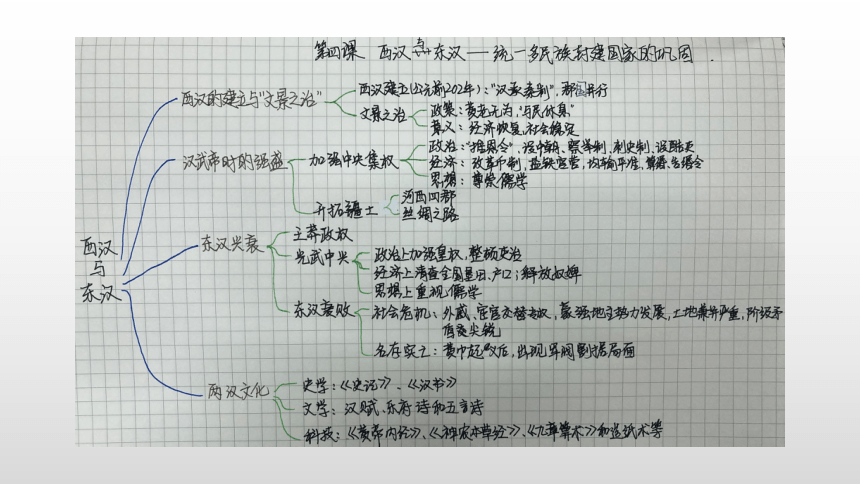 第四课 西汉与东汉——统一多民族封建国家的巩固
西汉的建立与"文景之治"
西汉建立(公元前202年):"汉承秦制",郡国并行
文景之治
政策:黄老无为,"与民休息"
意义:经济恢复,社会稳定
汉武帝时的强盛
加强中央集权
政治:"推恩令",设中朝、察举制、刺史制、设酷吏
经济:改革币制,盐铁官营,均输平准、算缗、告缗令
思想:尊崇儒学
开拓疆土
河西四郡
丝绸之路
西汉
与
东汉
东汉兴衰
王莽政权
光武中兴
政治上加强皇权,整顿吏治
经济上清查全国垦田、户口;释放奴婢
思想上重视儒学
东汉衰败
社会危机:外戚、宦官交替专权,豪强地主势力发展,土地兼并严重,阶级矛
盾尖锐
名存实亡:黄巾起义后,出现军阀割据局面
两汉文化
史学:《史记》、《汉书》
文学:汉赋、乐府诗和五言诗
科技:《黄帝内经》、《神农本草经》、《九章算术》和造纸术等